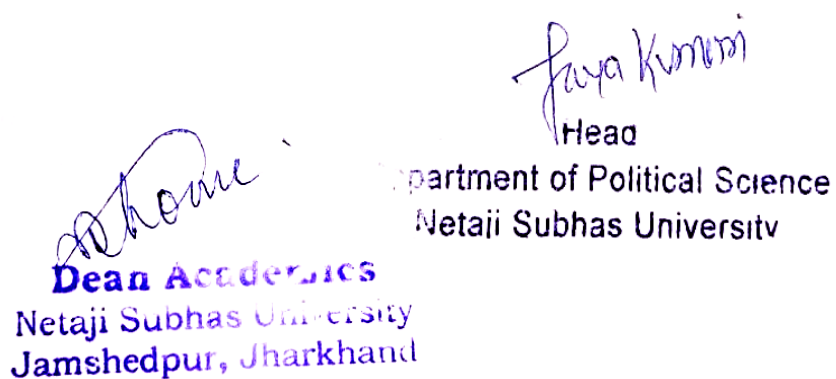 Jaya Kumari
Head
partment of Political Science
Netaji Subhas University
Dean Academics
Netaji Subhas University
Jamshedpur, Jharkhand